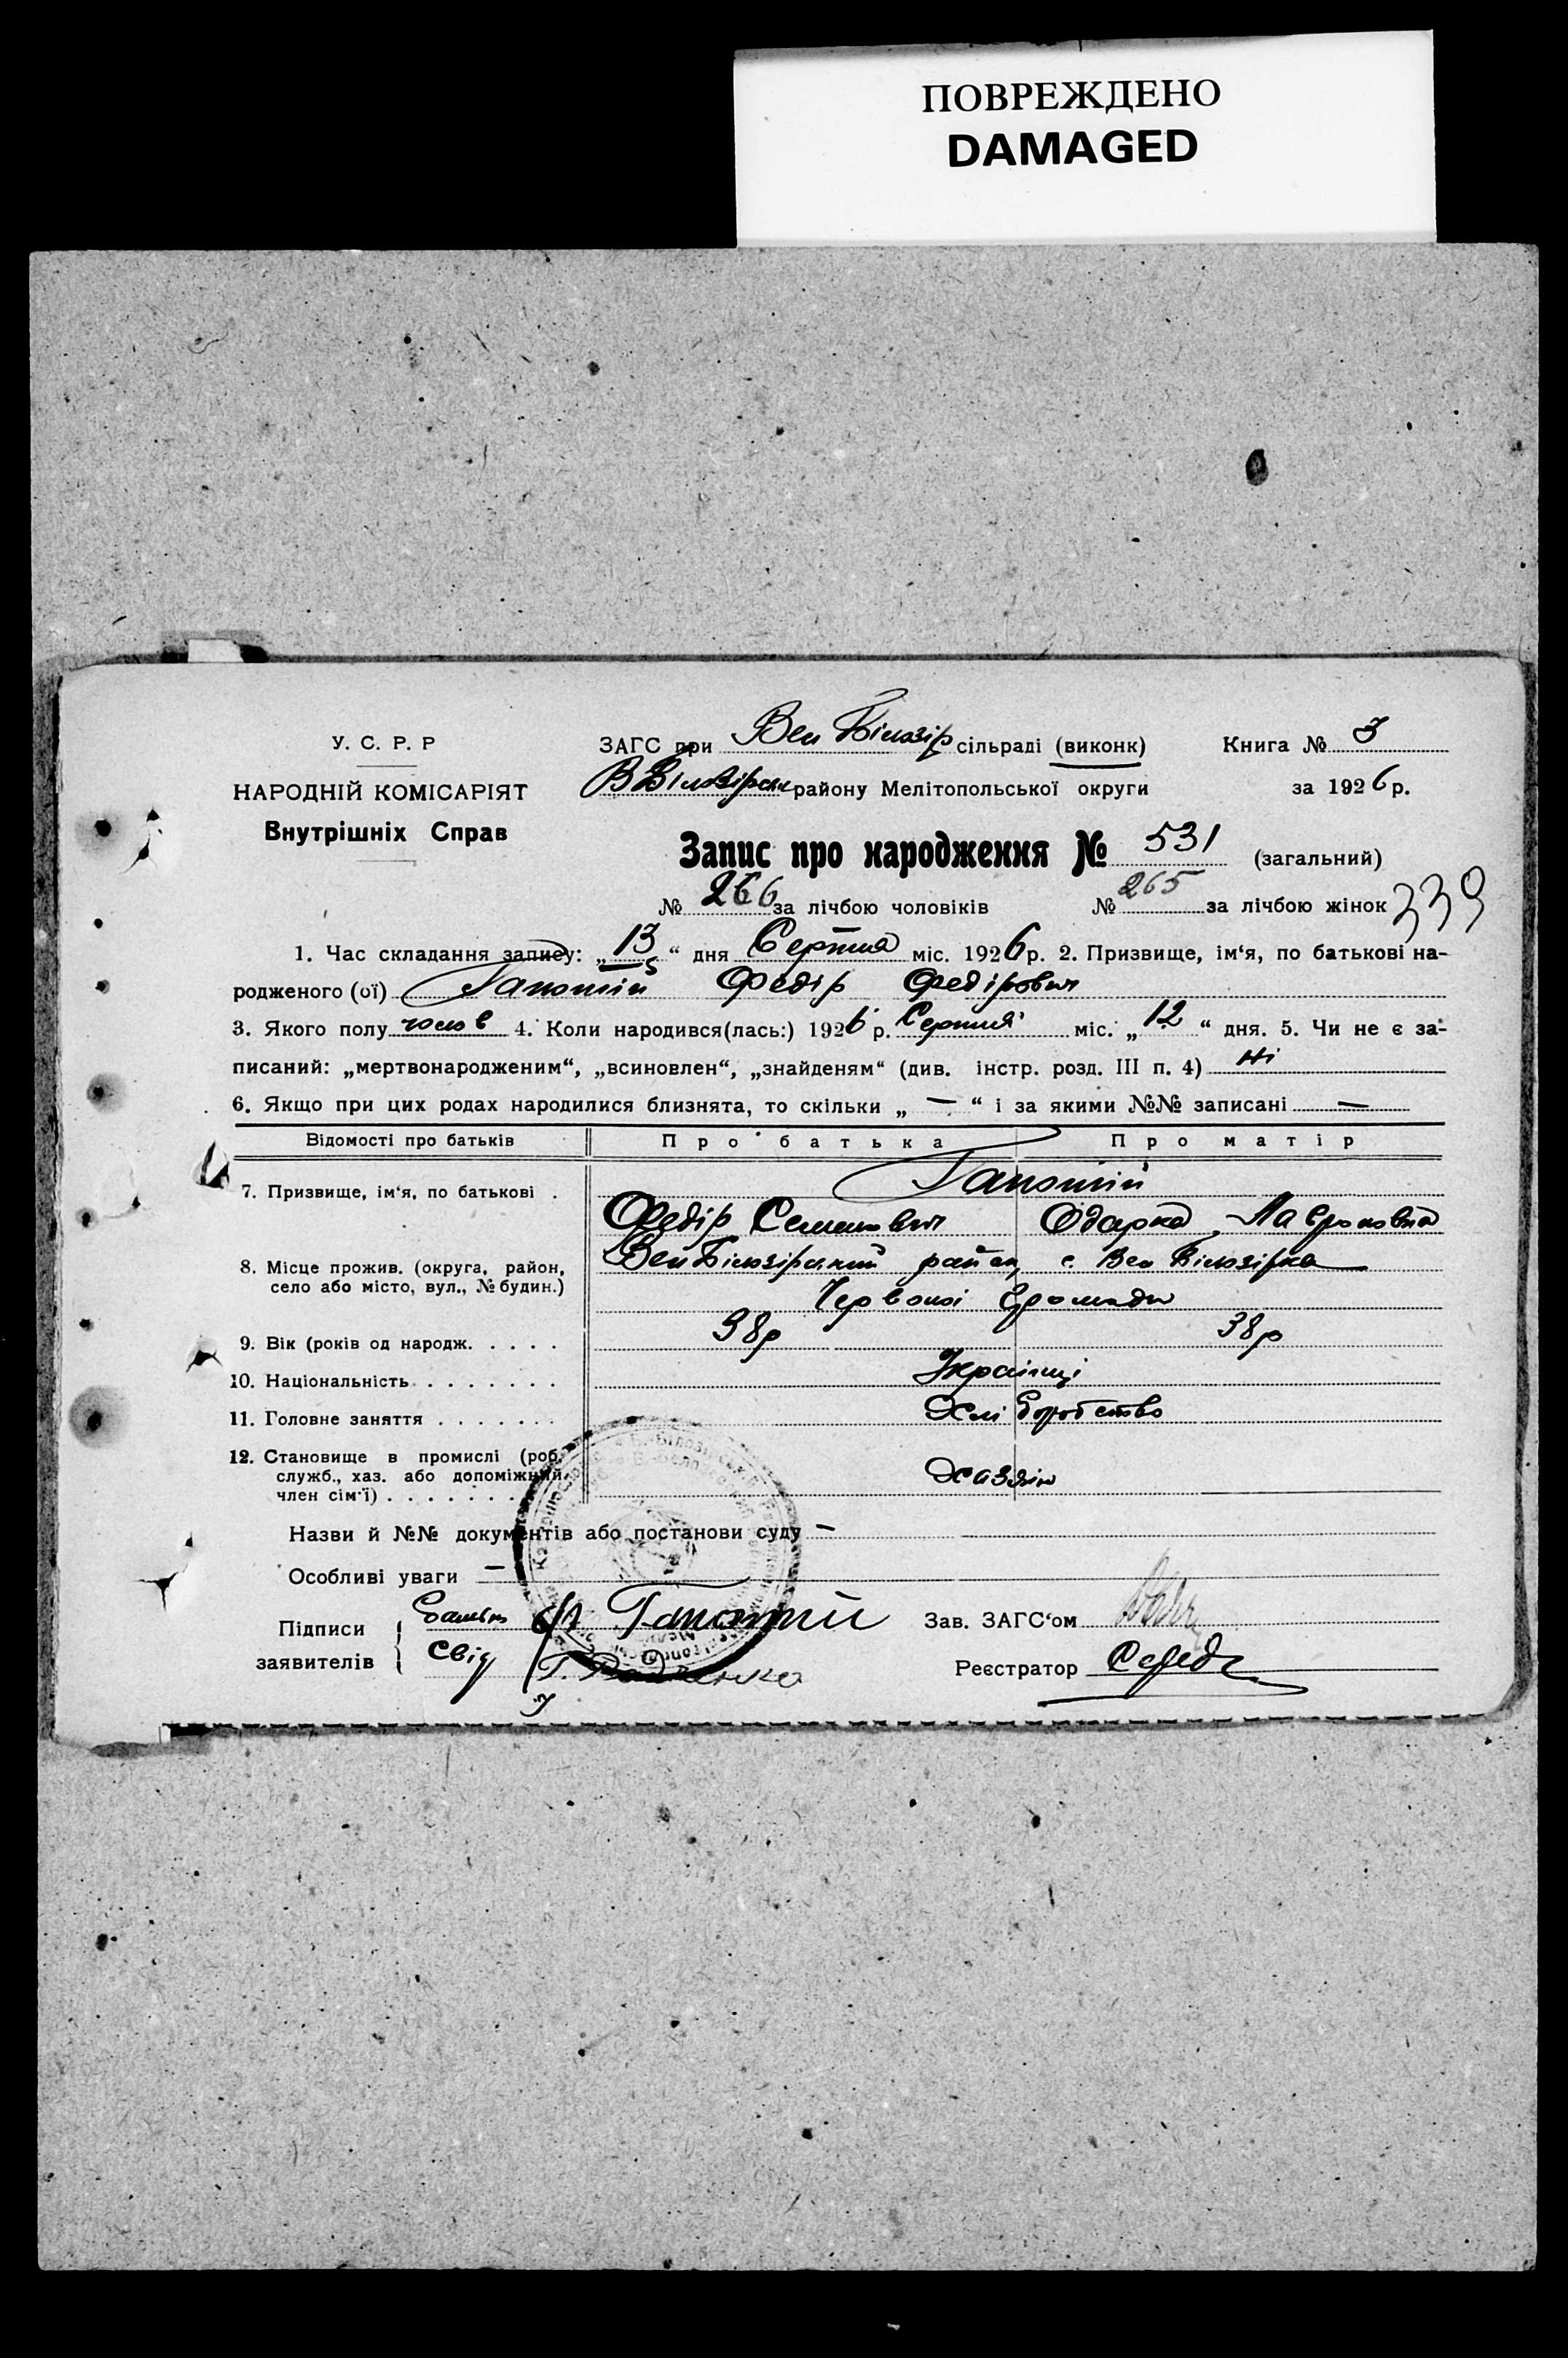 ПОВРЕЖДЕНО
DAMAGED
У. С. Р. Р
НАРОДНІЙ КОМІСАРІЯТ
Внутрішніх Справ
ЗАГС при Вел Білозір сільраді (виконк) Книга № 3
В Білозірськ району Мелітопольської округи за 1926 р.
Запис про народження № 531 (загальний)
№ 266 за лічбою чоловіків № 265 за лічбою жінок 339
1. Час складання запису: „13“ дня Серпня міс. 1926 р. 2. Призвище, ім‘я, по батькові на-
родженого (ої) Гапотій Федір Федірович
3. Якого полу чолов 4. Коли народився(лась:) 1926 р. Серпня міс. „12“ дня. 5. Чи не є за-
писаний: „мертвонародженим“, „всиновлен“, „знайденям“ (див. інстр. розд. III п. 4) Ні
6. Якщо при цих родах народилися близнята, то скільки „ — “ і за якими №№ записані —
Відомості про батьків Про батька Про матір
7. Призвище, ім‘я, по батькові . Гапотій
Федір Семенович Одарка Лавроновна
8. Місце прожив. (округа, район, село або місто, вул., № будин.) Вел Білозірський район, с. Вел Білозірка
Червоної Громади
9. Вік (років од народж. . . . . 38р 38р
10. Національність . . . . . . . Українці
11. Головне заняття . . . . . . . Хліборобство
12. Становище в промислі (роб. служб., хаз. або допоміжний член сім‘ї) . . . . . . . Хазяїн
Назви й №№ документів або постанови суду —
Особливі уваги —
Підписи заявителів { Батько Гапотій Зав. ЗАГС‘ом
Свід Реєстратор